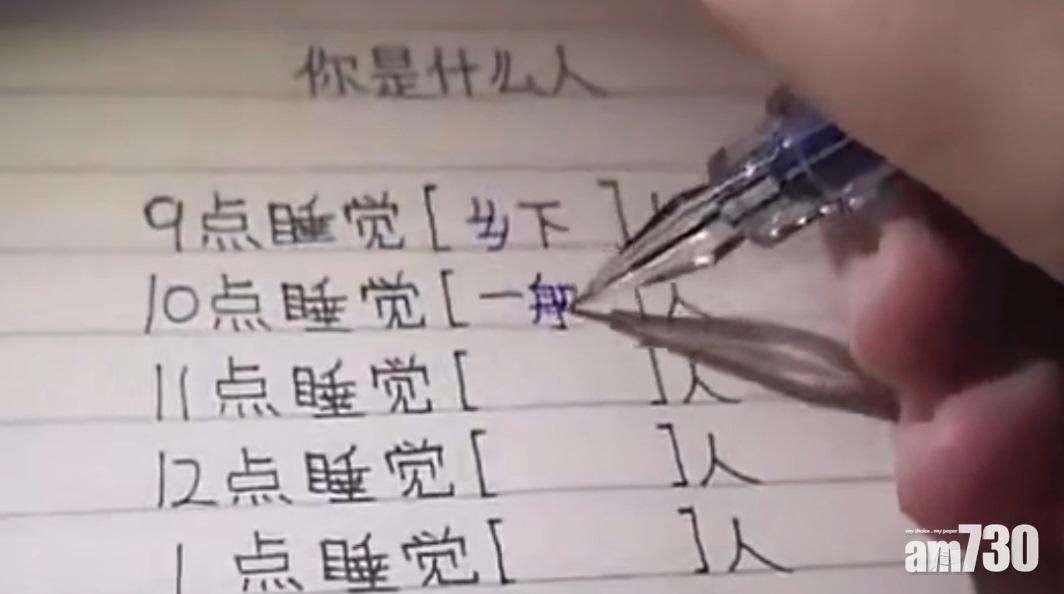 你是什么人
9点睡觉[乡下]人
10点睡觉[一般]人
11点睡觉[ ]人
12点睡觉[ ]人
1点睡觉[ ]人
my choice . my paper
am730